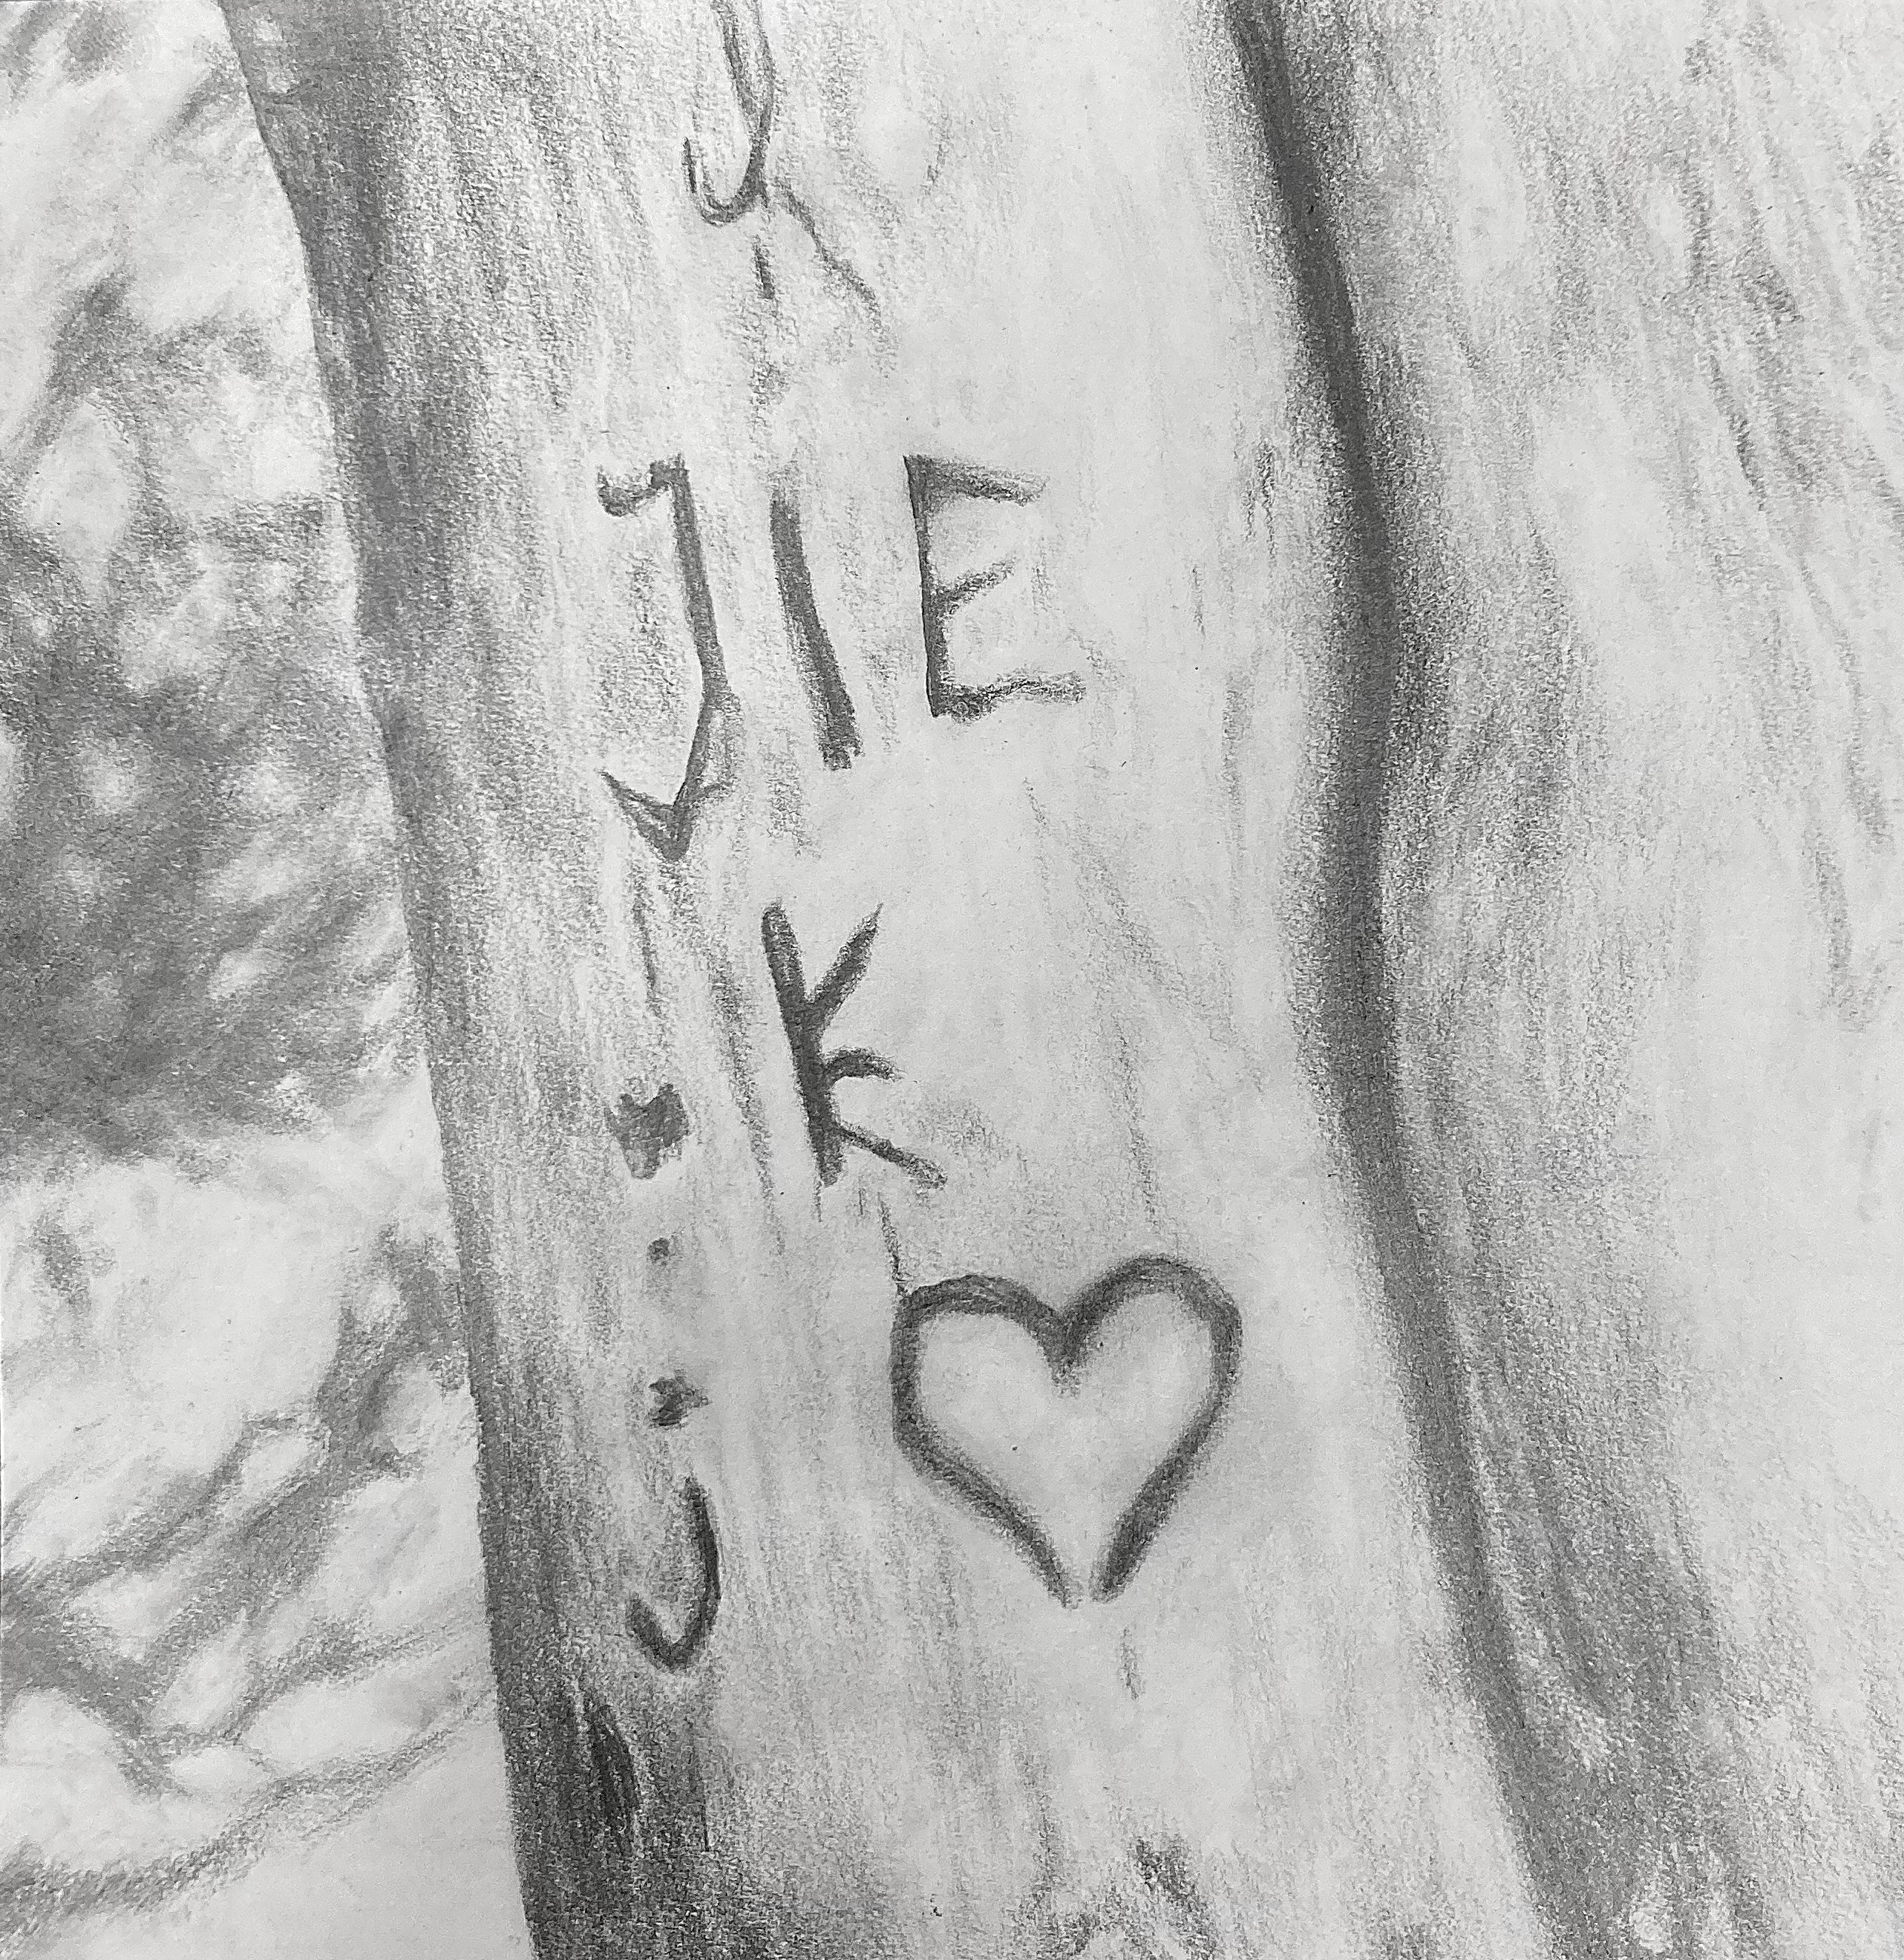 JIE
K